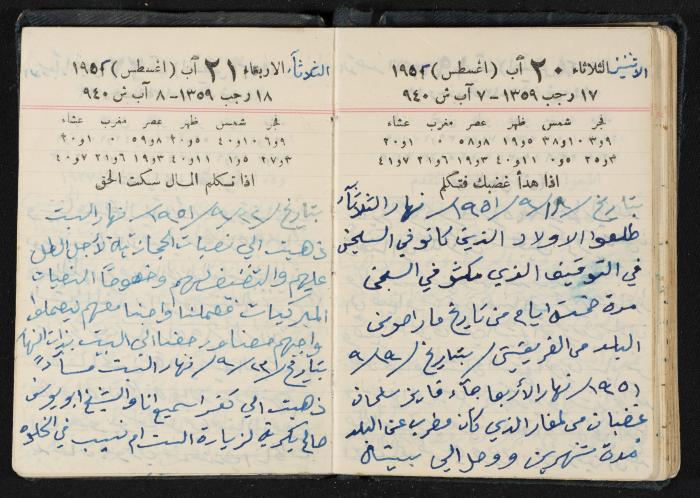 الاثنين الثلاثاء ٢٠ آب (اغسطس) ١٩٥٢
١٧ رجب ١٣٥٩ - ٧ آب ش ٩٤٠
فجر شمس ظهر عصر مغرب عشاء
اذا هدأ غضبك فتكلم
بتاريخ /١٨/٩/١٩٥١/ نهار الثلاثاء
طلعوا الاولاد الذين كانو في السجن
في التوقيف الذي مكثو في السجن
مدة خمسة ايام من تاريخ ما راحو من
البلد من الفريقين / بتاريخ /١٩/٩
١٩٥١/ نهار الأربعا جآء فايز سلمان
غضبان من لمغار الذي كان مطرب عن البلد
مدة شهرين ووصل الى بيته
الثلاثاء الاربعاء ٢١ آب (اغسطس) ١٩٥٢
١٨ رجب ١٣٥٩ - ٨ آب ش ٩٤٠
فجر شمس ظهر عصر مغرب عشاء
اذا تكلم المال سكت الحق
بتاريخ /٢٢/٩/١٩٥١/ نهار السبت
ذهبت الى نصبات الحجازية لأجل الطل
عليهم والتضيف لهم وخصوصاً النصبات
فعملنا واحنا معهم ليعملوا
واجبهم معنا ورجعنا الى البيت بذات النهار
بتاريخ /٢٢/٩/ نهار السبت مساءً
ذهبت الى كفر اسميع انا والشيخ ابو يوسف
صالح بكرية لزيارة الست ام نسيب في الخلوه